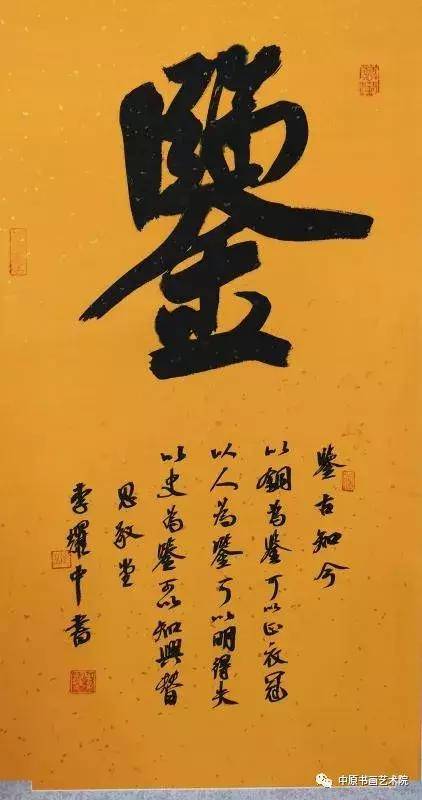 鑒
鑒古知今
以銅為鑒可以正衣冠
以人為鑒可以明得失
以史為鑒可以知興替
思敬堂
李耀中書
中原书画艺术院